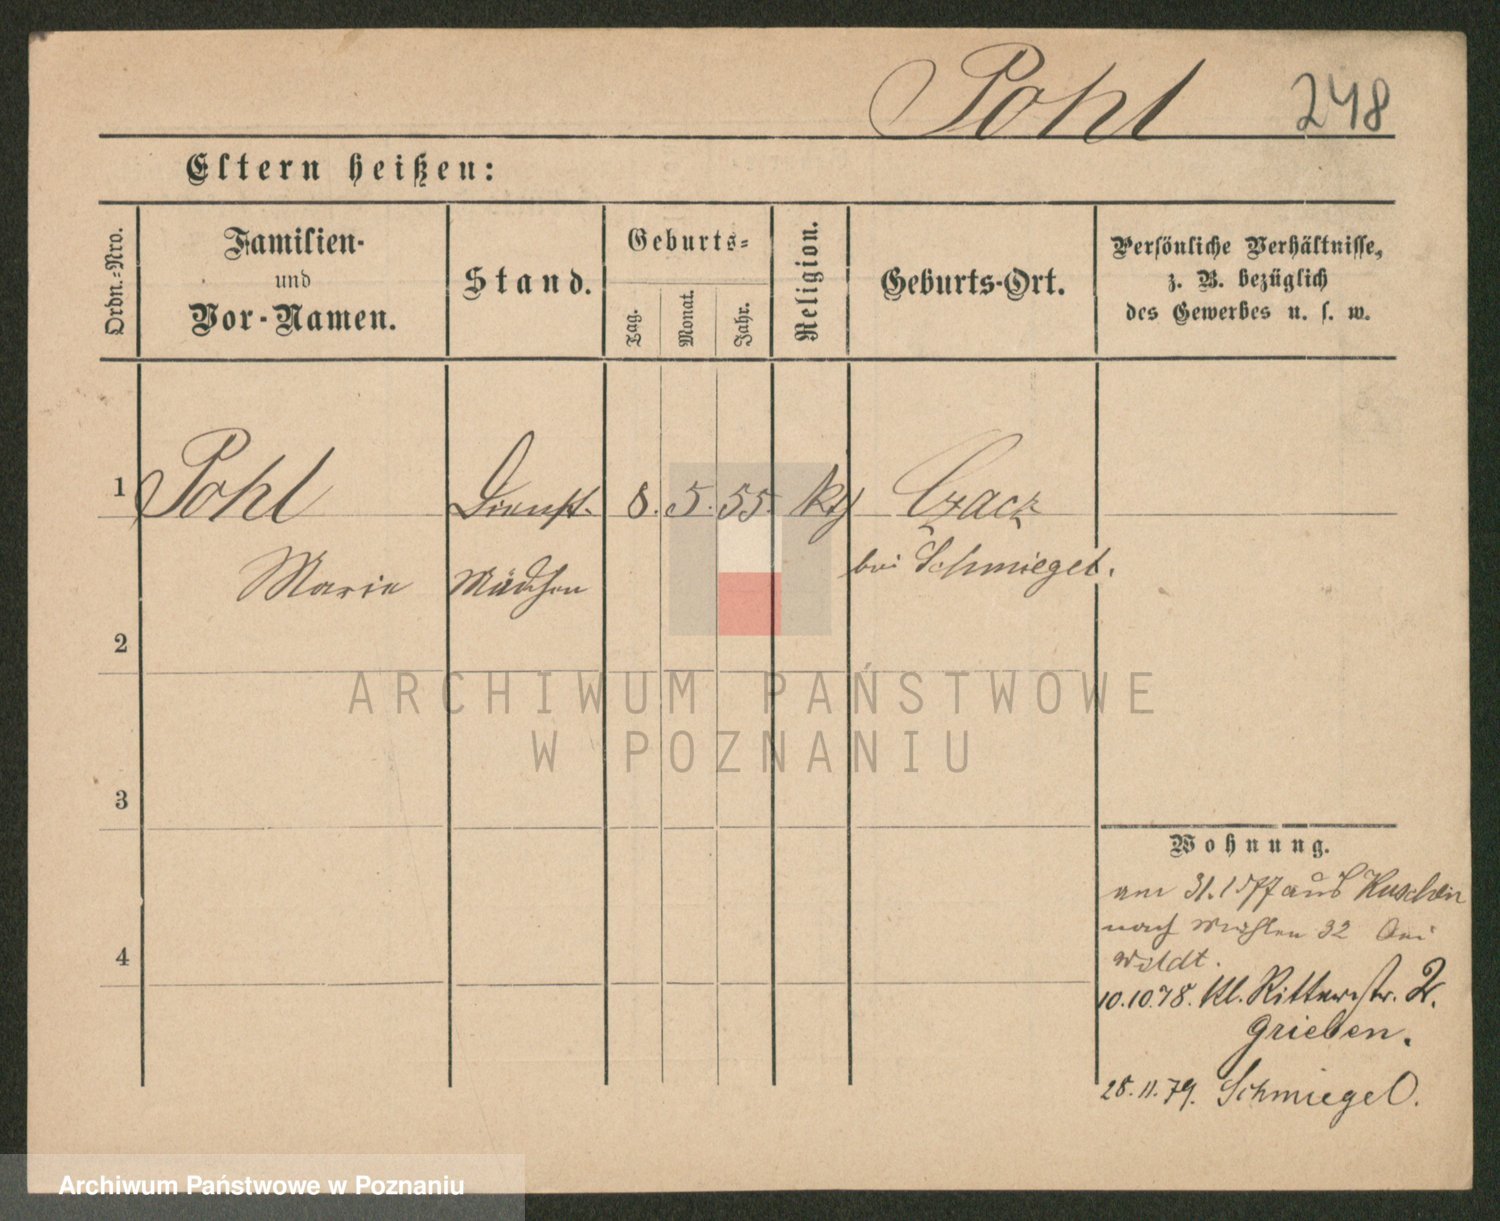 Pohl 248
Eltern heißen:
Ordn.-Nro.
Familien-
und
Vor-Namen.
Stand.
Geburts-
Tag.
Monat.
Jahr.
Religion.
Geburts-Ort.
Persönliche Verhältnisse,
z. B. bezüglich
des Gewerbes u. s. w.
1 Pohl Dienst- 8. 5. 55. kth Czacz
Marie Mädchen bei Schmiegel.
2
3
4
ARCHIWUM PAŃSTWOWE
W POZNANIU
Wohnung.
am 31.1 77 aus
nach Mühlen 32 bei
Woldt.
10.10.78. Kl. Ritterstr. 2.
Grieben.
28.11.79. Schmiegel.
Archiwum Państwowe w Poznaniu